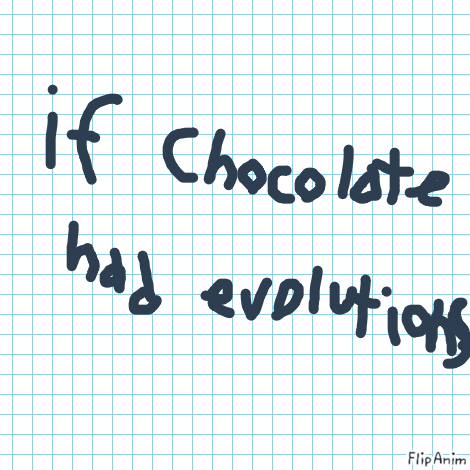 if Chocolate
had evolutions
FlipAnim